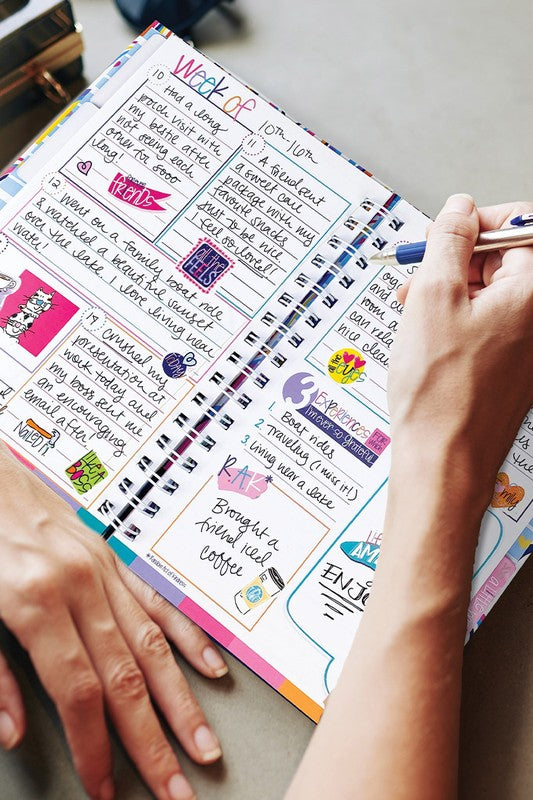 week of
10th-16th
10 Had a long
porch visit with
my bestie after
not seeing each
other for sooo
long!
friends
11 A friend sent
a sweet care
package with my
favorite snacks
just to be nice
I feel so loved!
all the
FEELS
12 Went on a family boat ride
& watched a beautiful sunset
over the lake. I love living near
water!
14 Crushed my
presentation @
work today and
my boss sent me
an encouraging
email after!
Nailed it
LIKE A
BOSS
and cle
room a
can rela
nice clea
all the
eyes
3 Experiences
I'm over so grateful
1
Boat rides
2. Traveling (I miss it!)
3 Living near a lake
RAK*
Brought a
friend iced
coffee
*Random Act of Kindness
LIFE
AMA
ENJOY
family
a little